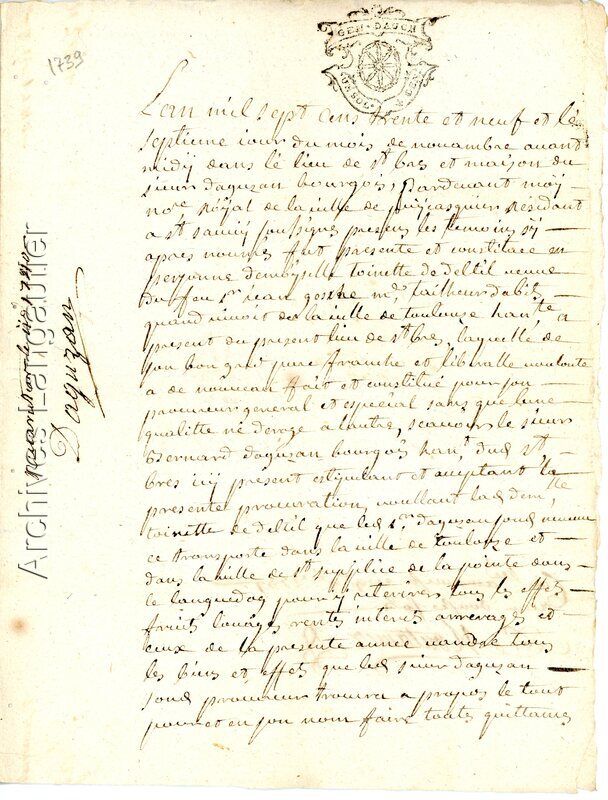 1739
GEN · DAUCH
Lan mil sept cens trente et neuf et le
septieme iour du mois de nouambre auant
midy dans le lieu de st bres et maison du
sieur daguzan bourgois, Pardeuant moy
nore Royal de la uille de puycasquier résidant
a st sauuy soussigné presens les temoins cy
apres nommés fut presente et constituée en
personne demoyselle toinette de deltil ueuue
du feu sr iean gosche me tailheur dabits
quand uiuoit de la uille de toulouze hante a
present du present lieu de st bres, laquelle de
son bon gré pure franche et liberalle uoulonte
a de nouueau fait et constitué pour son
procureur general et espécial sans que lune
qualitte ne deroge a lautre, scauoir le sieur
Bernard daguzan bourgois hant dud st
bres icy présent estipulant et aceptant la
presente procuration, uoullant lad demlle
toinette de deltil que led sr daguzan sond
ce transporte dans la uille de toulouze et
dans la uille de st supplice de la pointe dans
le languedoq pour y retirer tous les effets
fruits louages rentes interets arrerages et
ceux de la presente année uandre tous
les biens et effets que led sieur daguzan
sond procureur trouuera a propos le tout
pour et en son nom faire toutes quittances
Daguzan
Archives Langautier